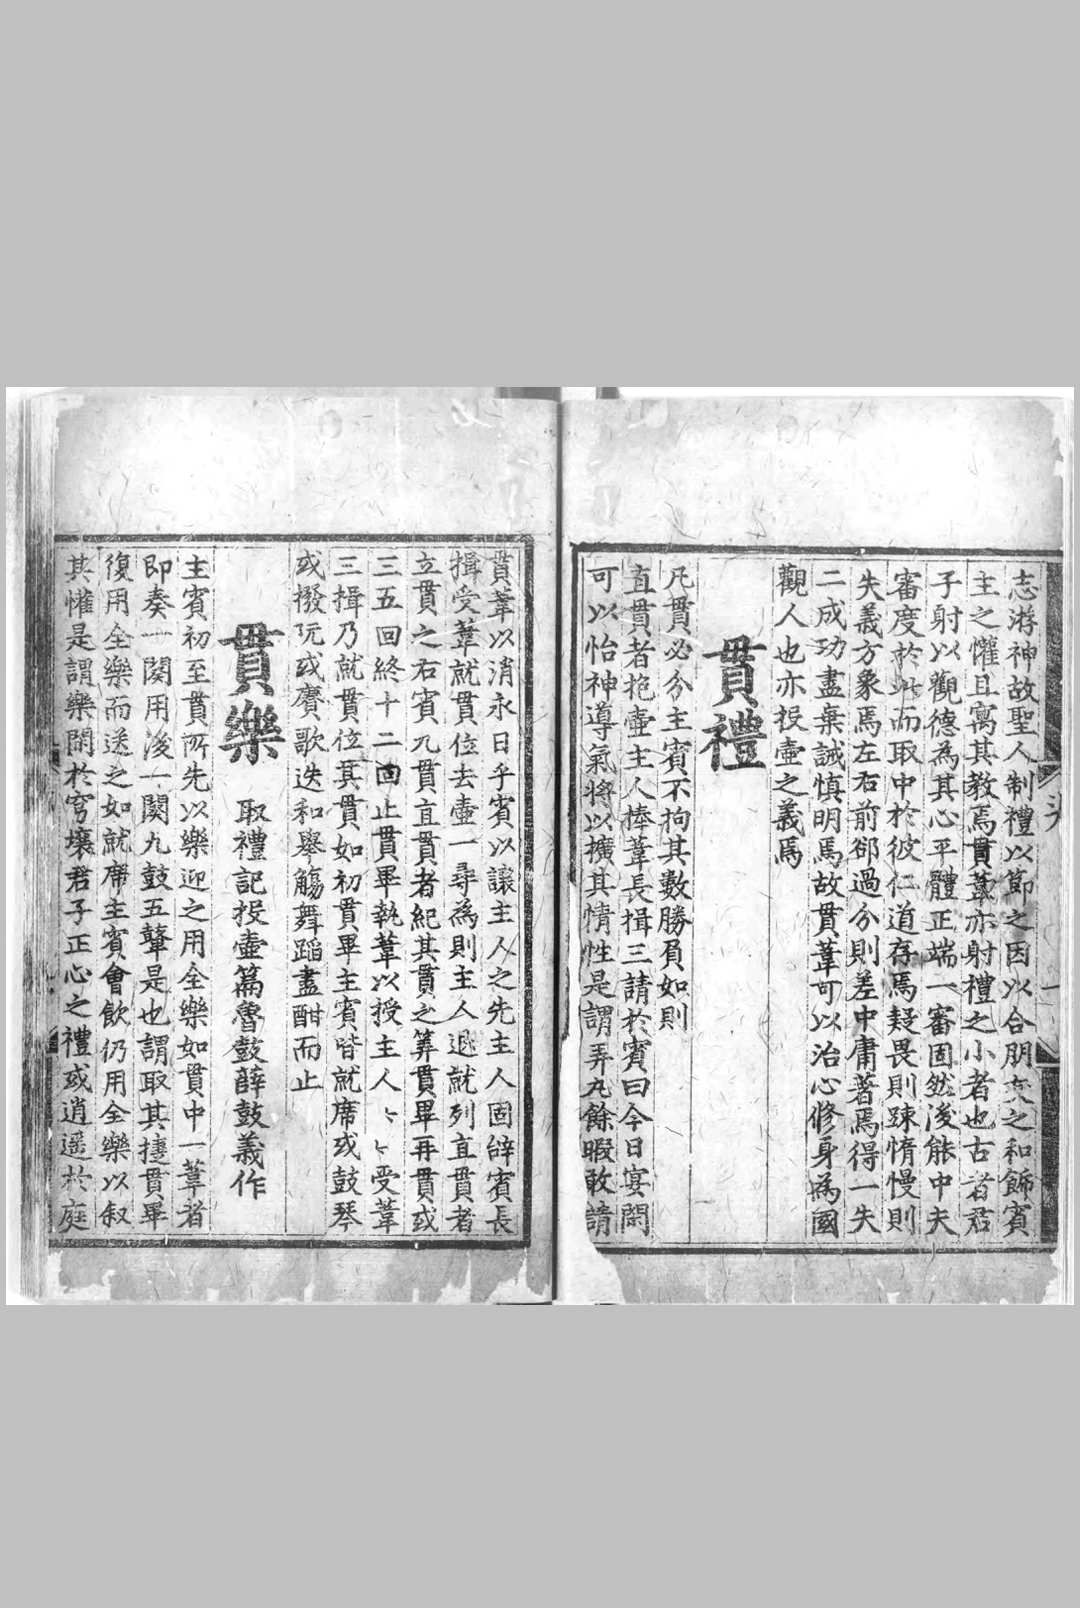 志游神故聖人制禮以節之因以合朋友之和飾賓
主之懽且寓其教焉貫葦亦射禮之小者也古者君
子射以觀德為其心平體正端一審固然後能中夫
審度於此而取中於彼仁道存焉疑畏則踈惰慢則
失義方象焉左右前郤過分則差中庸著焉得一失
二成功盡棄誠慎明焉故貫葦可以治心修身為國
觀人也亦投壺之義焉
貫禮
凡貫必分主賓不拘其數勝負如則
直貫者抱壺主人棒葦長揖三請於賓曰今日宴閒
可以怡神導氣將以擴其情性是謂弄丸餘暇敢請
貫葦以消永日乎賓以讓主人之先主人固辭賓長
揖受葦就貫位去壺一尋為則主人退就列直貫者
立貫之右賓凡貫直貫者紀其貫之筭貫畢再貫或
三五回終十二回止貫畢執葦以授主人々々受葦
三揖乃就貫位其貫如初貫畢主賓皆就席或鼓琴
或撥阮或賡歌迭和舉觴舞蹈盡酣而止
貫樂 取禮記投壺篇魯鼓薛鼓義作
主賓初至貫所先以樂迎之用全樂如貫中一葦者
即奏一闋用後一闋九鼓五鼙是也謂取其捷貫畢
復用全樂而送之如就席主賓會飲仍用全樂以叙
其懽是謂樂閙於穹壤君子正心之禮或逍遥於庭